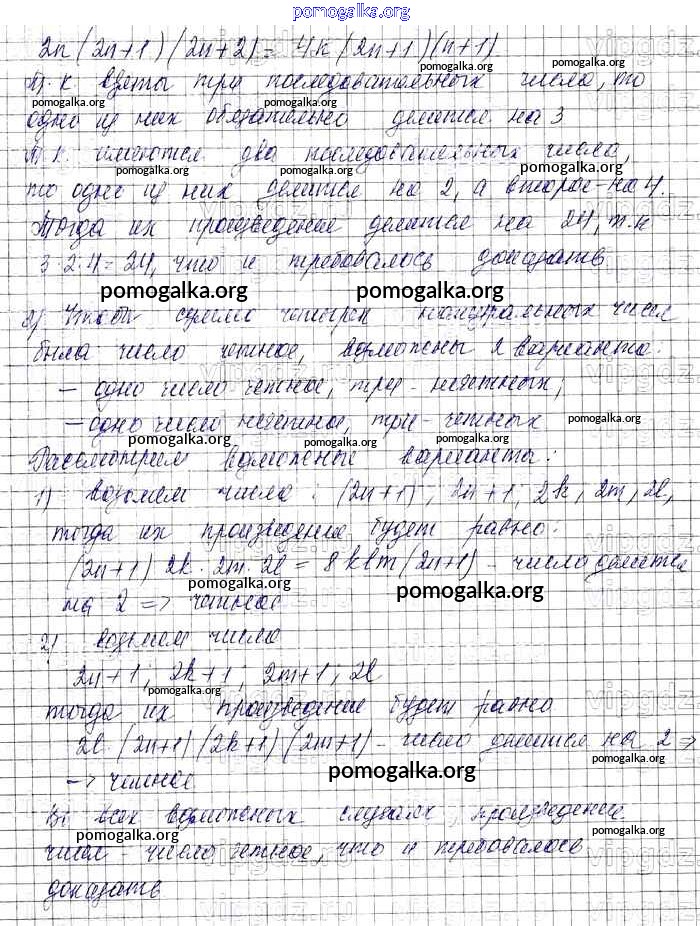 pomogalka.org
2n(2n+1)(2n+2) = 4k(2n+1)(n+1)
Т.к взяты три последовательных числа, то
pomogalka.org pomogalka.org pomogalka.org
одно из них обязательно делится на 3
pomogalka.org pomogalka.org
Т.к. имеются два последовательных числа,
pomogalka.org pomogalka.org
то одно из них делится на 2, а второе - на 4.
Тогда их произведение делится на 24, т.к
3·2·4=24, что и требовалось доказать
pomogalka.org pomogalka.org
2) Чтобы сумма четырех натуральных чисел
была число четное, возможны 2 варианта:
— одно число четное, три - нечетных;
— одно число нечетное, три - четных
pomogalka.org pomogalka.org pomogalka.org pomogalka.org
Рассмотрим возможные варианты:
1) возьмем числа: (2n+1); 2n+1; 2k, 2m, 2l,
тогда их произведение будет равно:
(2n+1) 2k · 2m · 2l = 8klm(2n+1) - число делится
pomogalka.org pomogalka.org
на 2 => четное
2) возьмем числа
2n+1; 2k+1; 2m+1; 2l
pomogalka.org
тогда их произведение будет равно
2l·(2n+1)(2k+1)(2m+1) - число делится на 2 =>
pomogalka.org
-> четное
Во всех возможных случаях, произведение
pomogalka.org pomogalka.org
чисел - число четное, что и требовалось
доказать